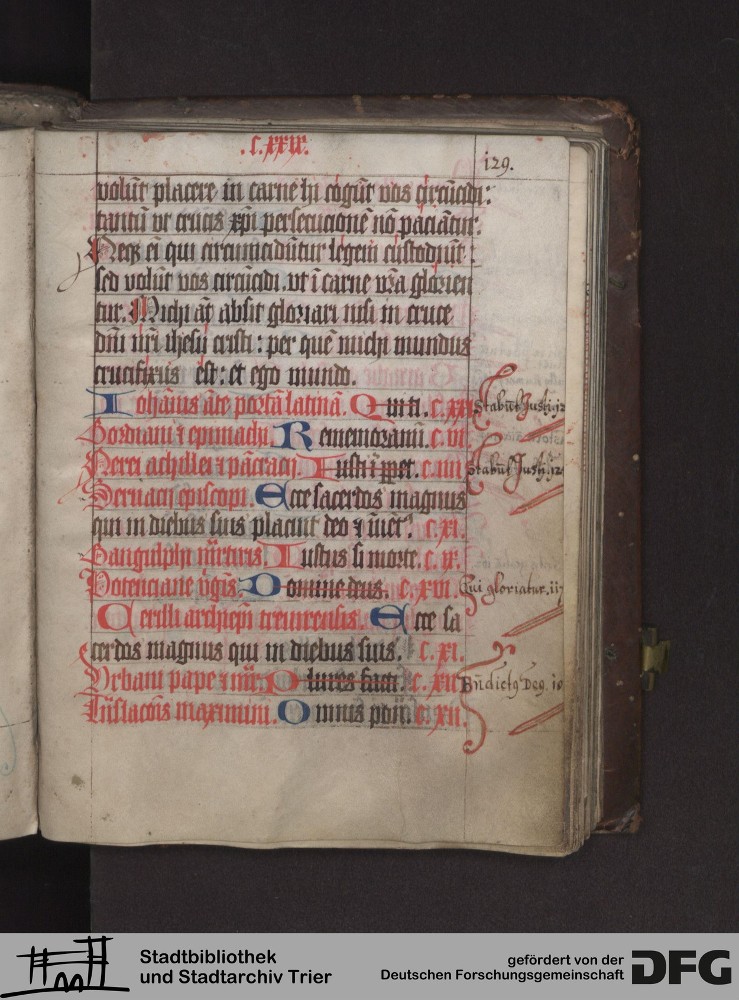 .C.xxix.
129.
volūt placere in carne hi cogūt vos circūcidi:
tantū vt crucis xp̄i persecucionē nō paciāt̄ur.
Neqꝫ eī qui circūmciduntur legem custodiūt:
sed volūt vos circūcidi. vt ī carne vr̄a glorien
tur. Michi at̄ absit gloriari nisi in cruce
dn̄i nr̄i ihesu cristi: per quē michi mundus
crucifixus est: et ego mundo.
Iohānis āte portā latinā. Qui ti. c. xxi
Stabūt Justi.
Gordiani ⁊ epimachi. Rememoramī. c. vi.
Nerei achillei ⁊ pācracij. Iusti ī ꝑpet. c. iiii
Stabūt Justi.
Seruacij episcopi. Ecce sacerdos magnus
qui in diebus suis placuit deo ⁊ īuēt̄. c. xi.
Gangulphi mr̄tiris. Iustus si morte. c. ix.
Potenciane v̄gīs. Domine deus. c. xvi.
Qui gloriatur. ii
Cerilli archiepi treuirensis. Ecce sa
cerdos magnus qui in diebus suis. c. xi.
Vrbani pape ⁊ mr̄. Plures facti. c. xii
Bn̄dictꝰ Deꝰ. 10
Trāslacōis maximini. Omnis pōti. c. xii.
Stadtbibliothek
und Stadtarchiv Trier
gefördert von der
Deutschen Forschungsgemeinschaft
DFG